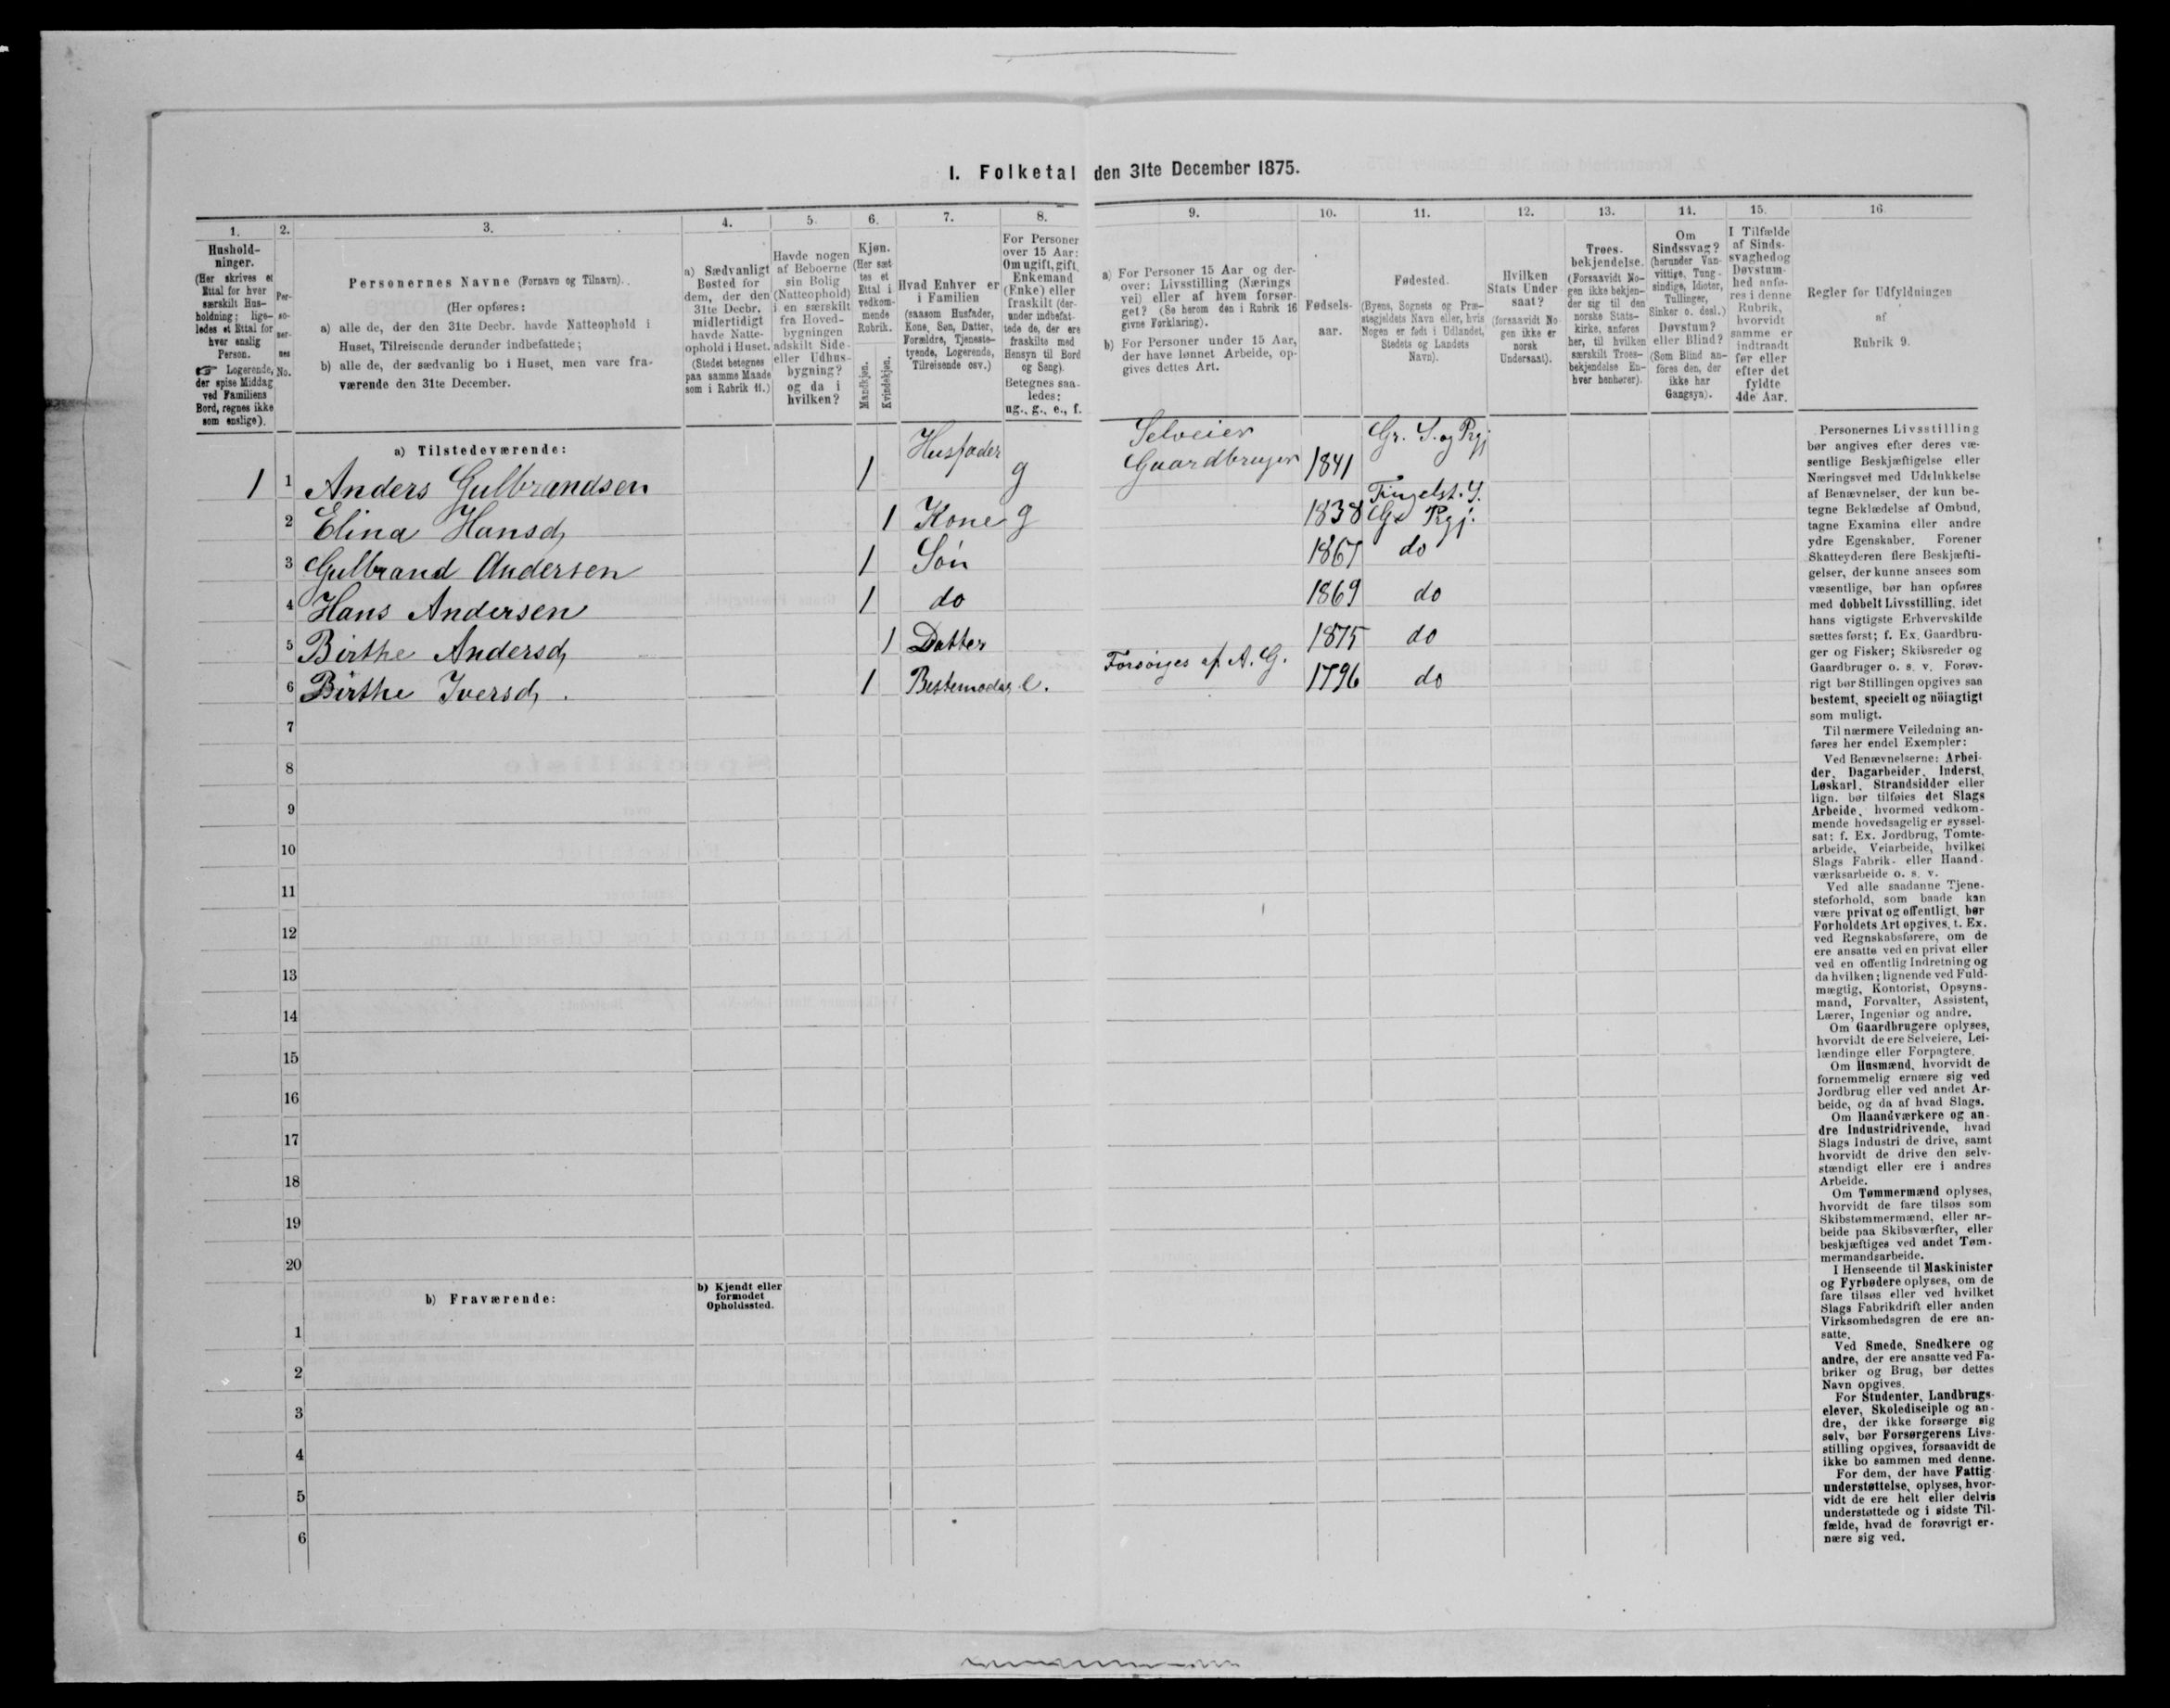 I. Folketal den 31te December 1875.
1.
2.
3.
4.
5.
6.
7.
8.
9.
10.
11.
12.
13.
14.
15.
16.
Hushold-
ninger.
(Her skrives et
Ettal for hver
særskilt Hus-
holdning; lige-
ledes et Ettal for
hver enslig
Person.
☞ Logerende,
der spise Middag
ved Familiens
Bord, regnes ikke
som enslige).
Per-
so-
ner-
nes
No.
Personernes Navne (Fornavn og Tilnavn).
(Her opføres:
a) alle de, der den 31te Decbr. havde Natteophold i
Huset, Tilreisende derunder indbefattede;
b) alle de, der sædvanlig bo i Huset, men vare fra-
værende den 31te December.
a) Sædvanligt
Bosted for
dem, der den
31te Decbr.
midlertidigt
havde Natte-
ophold i Huset.
(Stedet betegnes
paa samme Maade
som i Rubrik 11.)
Havde nogen
af Beboerne
sin Bolig
(Natteophold)
i en særskilt
fra Hoved-
bygningen
adskilt Side-
eller Udhus-
bygning?
og da i
hvilken?
Kjøn.
(Her sæt
tes et
Ettal i
vedkom-
mende
Rubrik.
Mandkjøn.
Kvindekjøn.
Hvad Enhver er
i Familien
(saasom Husfader,
Kone, Søn, Datter,
Forældre, Tjeneste-
tyende, Logerende,
Tilreisende osv.)
For Personer
over 15 Aar:
Om ugift, gift,
Enkemand
(Enke) eller
fraskilt (der-
under indbefat-
tede de, der ere
fraskilte med
Hensyn til Bord
og Seng).
Betegnes saa-
ledes:
ug., g., e., f.
a) For Personer 15 Aar og der-
over: Livsstilling (Nærings
vei) eller af hvem forsør-
get? (Se herom den i Rubrik 16
givne Forklaring).
b) For Personer under 15 Aar,
der have lønnet Arbeide, op-
gives dettes Art.
Fødsels-
aar.
Fødested.
(Byens, Sognets og Præ-
stegjeldets Navn eller, hvis
Nogen er født i Udlandet,
Stedets og Landets
Navn).
Hvilken
Stats Under
saat?
(forsaavidt No
gen ikke er
norsk
Undersaat).
Troes-
bekjendelse.
(Forsaavidt No-
gen ikke bekjen-
der sig til den
norske Stats-
kirke, anføres
her, til hvilken
særskilt Troes-
bekjendelse En-
hver henhører).
Om
Sindssvag?
(herunder Van-
vittige, Tung-
sindige, Idioter,
Tullinger,
Sinker o. desl.)
Døvstum?
eller Blind?
(Som Blind an-
føres den, der
ikke har
Gangsyn).
I Tilfælde
af Sinds-
svaghed og
Døvstum-
hed anfø-
res i denne
Rubrik,
hvorvidt
samme er
indtraadt
før eller
efter det
fyldte
4de Aar.
Regler for Udfyldningen
af
Rubrik 9.
a) Tilstedeværende:
1 1 Anders Gulbrandsen 1 Husfader g Selveier Gaardbruger 1841 Gr. S. og Prgj
2 Elina Hansd, 1 Kone g 1838 Tingelst. S. Gr Prgj.
3 Gulbrand Andersen 1 Søn 1867 do
4 Hans Andersen 1 do 1869 do
5 Birthe Andersd, 1 Datter 1875 do
6 Birthe Iversd, 1 Bestemoder e. Forsørges af A. G. 1796 do
7
8
9
10
11
12
13
14
15
16
17
18
19
20
b) Fraværende:
b) Kjendt eller
formodet
Opholdssted.
1
2
3
4
5
6
Personernes Livsstilling
bør angives efter deres væ-
sentlige Beskjæftigelse eller
Næringsvei med Udelukkelse
af Benævnelser, der kun be-
tegne Beklædelse af Ombud,
tagne Examina eller andre
ydre Egenskaber. Forener
Skatteyderen flere Beskjæfti-
gelser, der kunne ansees som
væsentlige, bør han opføres
med dobbelt Livsstilling, idet
hans vigtigste Erhvervskilde
sættes først; f. Ex. Gaardbru-
ger og Fisker; Skibsreder og
Gaardbruger o. s. v. Forøv-
rigt bør Stillingen opgives saa
bestemt, specielt og nöiagtigt
som muligt.
Til nærmere Veiledning an-
føres her endel Exempler:
Ved Benævnelserne: Arbei-
der, Dagarbeider, Inderst,
Løskarl, Strandsidder eller
lign. bør tilføies det Slags
Arbeide, hvormed vedkom-
mende hovedsagelig er syssel-
sat; f. Ex. Jordbrug, Tomte-
arbeide, Veiarbeide, hvilket
Slags Fabrik- eller Haand-
værksarbeide o. s. v.
Ved alle saadanne Tjene-
steforhold, som baade kan
være privat og offentligt, bør
Forholdets Art opgives, t. Ex.
ved Regnskabsførere, om de
ere ansatte ved en privat eller
ved en offentlig Indretning og
da hvilken; lignende ved Fuld-
mægtig, Kontorist, Opsyns-
mand, Forvalter, Assistent,
Lærer, Ingeniør og andre.
Om Gaardbrugere oplyses,
hvorvidt de ere Selveiere, Lei-
lændinge eller Forpagtere.
Om Husmænd, hvorvidt de
fornemmelig ernære sig ved
Jordbrug eller ved andet Ar-
beide, og da af hvad Slags.
Om Haandværkere og an-
dre Industridrivende, hvad
Slags Industri de drive, samt
hvorvidt de drive den selv-
stændigt eller ere i andres
Arbeide.
Om Tømmermænd oplyses,
hvorvidt de fare tilsøs som
Skibstømmermænd, eller ar-
beide paa Skibsværfter, eller
beskjæftiges ved andet Tøm-
mermandsarbeide.
I Henseende til Maskinister
og Fyrbødere oplyses, om de
fare tilsøs eller ved hvilket
Slags Fabrikdrift eller anden
Virksomhedsgren de ere an-
satte.
Ved Smede, Snedkere og
andre, der ere ansatte ved Fa-
briker og Brug, bør dettes
Navn opgives.
For Studenter, Landbrugs-
elever, Skoledisciple og an-
dre, der ikke forsørge sig
selv, bør Forsørgerens Livs-
stilling opgives, forsaavidt de
ikke bo sammen med denne.
For dem, der have Fattig-
understøttelse, oplyses, hvor-
vidt de ere helt eller delvis
understøttede og i sidste Til-
fælde, hvad de forøvrigt er-
nære sig ved.